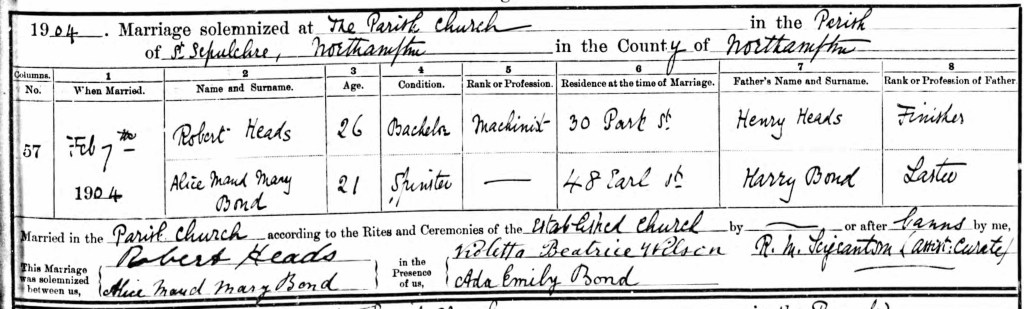 1904. Marriage solemnized at The Parish Church in the Parish
of St Sepulchre, Northampton in the County of Northampton
Columns. 1 2 3 4 5 6 7 8
No. When Married. Name and Surname. Age. Condition. Rank or Profession. Residence at the time of Marriage. Father's Name and Surname. Rank or Profession of Father.
57 Feb 7th 1904 Robert Heads 26 Bachelor Machinist 30 Park St Henry Heads Finisher
Alice Maud Mary Bond 21 Spinster — 48 Earl St Harry Bond Laster
Married in the Parish Church according to the Rites and Ceremonies of the Established Church by — or after banns by me,
This Marriage was solemnized between us, Robert Heads in the Presence of us, Violetta Beatrice Wilson R. M. (Assist: Curate)
Alice Maud Mary Bond Ada Emily Bond